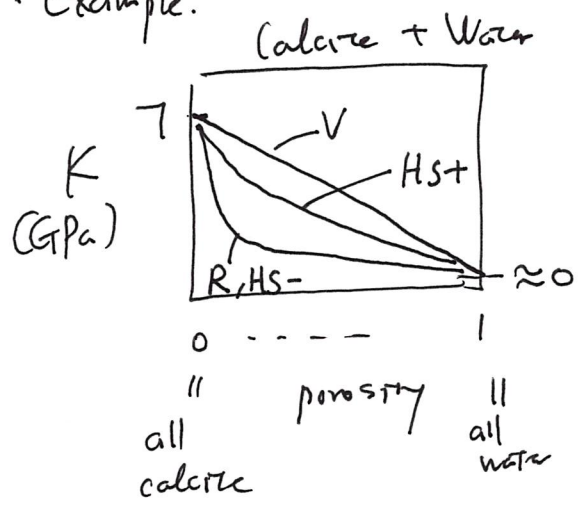 Example:
Calcite + Water
7
V
K
HS+
(GPa)
R, HS-
≈0
0 - - - - 1
" porosity "
all
calcite
all
water